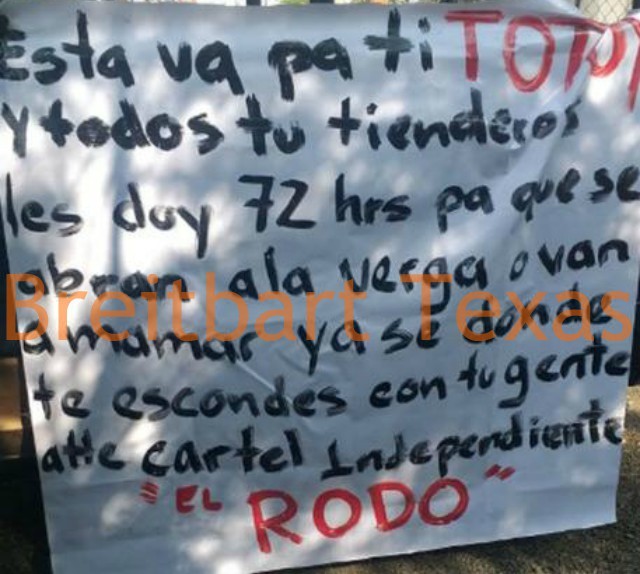 Esta va pa ti TOTOY
y todos tu tienderos
les doy 72 hrs pa que se
abran ala verga o van
a mamar ya se donde
te escondes con tu gente
atte cartel Independiente
"EL RODO"
Breitbart Texas